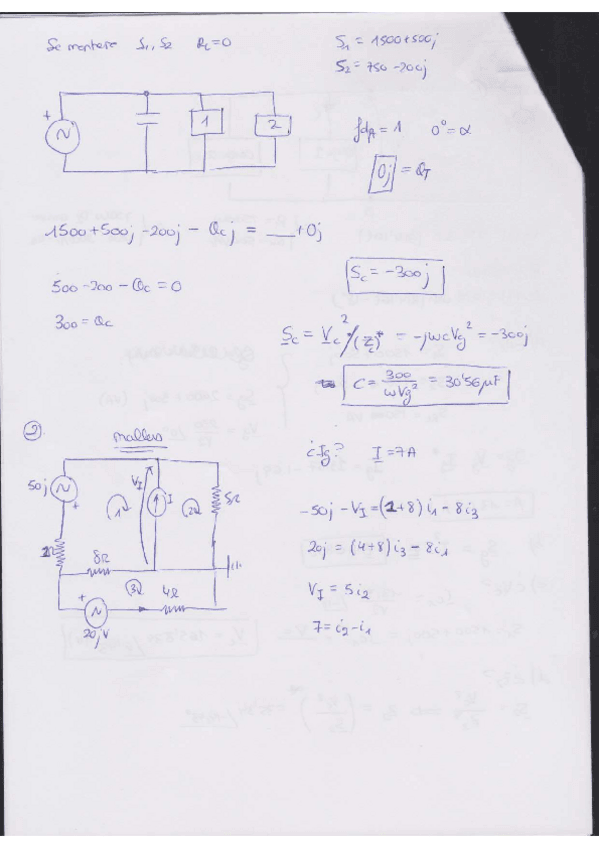 Se mantiene S1, S2 RL=0
S1 = 1500+500j
S2 = 750-200j
+
1
2
fdp = 1 0º = α
0j = QT
1500+500j-200j - Qcj = __+0j
Sc = -300j
500-200-Qc=0
300 = Qc
Sc = Vc²/(Zc)* = -jωcVg² = -300j
C = 300/ωVg² = 30'56μF
2)
mallas
¿Ig? I = 7A
50j
+
VI
1
I
2
5Ω
-50j - VI = (1+8)i1 - 8i3
8Ω
20j = (4+8)i3 - 8i1
3
4Ω
+
VI = 5i2
20jV
7 = i2-i1